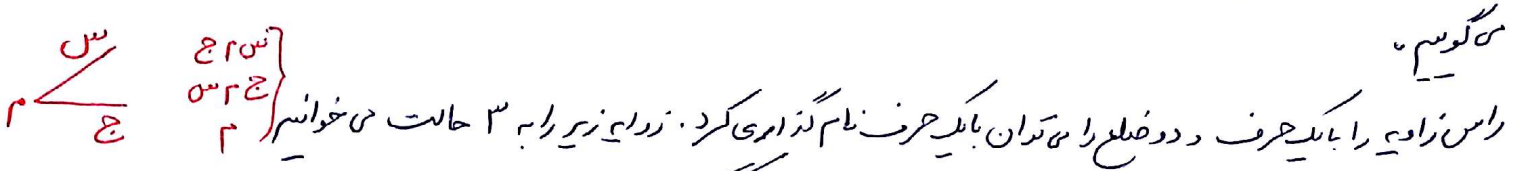 می‌گوییم.
راس زاویه را با یک حرف و دو ضلع را می‌توان با یک حرف نام گذاری کرد. زاویه زیر را به ۳ حالت می‌خوانیم
س م ج
ج م س
م
س
م
ج